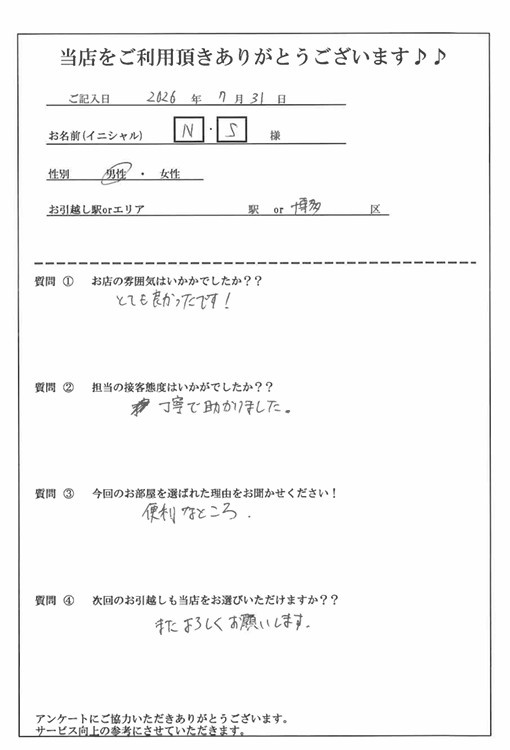 当店をご利用頂きありがとうございます♪♪
ご記入日 2026 年 7 月 31 日
お名前(イニシャル) N ・ S 様
性別 男性 ・ 女性
お引越し駅orエリア 駅 or 博多 区
質問 ① お店の雰囲気はいかかでしたか??
とても良かったです!
質問 ② 担当の接客態度はいかがでしたか??
丁寧で助かりました。
質問 ③ 今回のお部屋を選ばれた理由をお聞かせください!
便利なところ.
質問 ④ 次回のお引越しも当店をお選びいただけますか??
またよろしくお願いします.
アンケートにご協力いただきありがとうございます。
サービス向上の参考にさせていただきます。